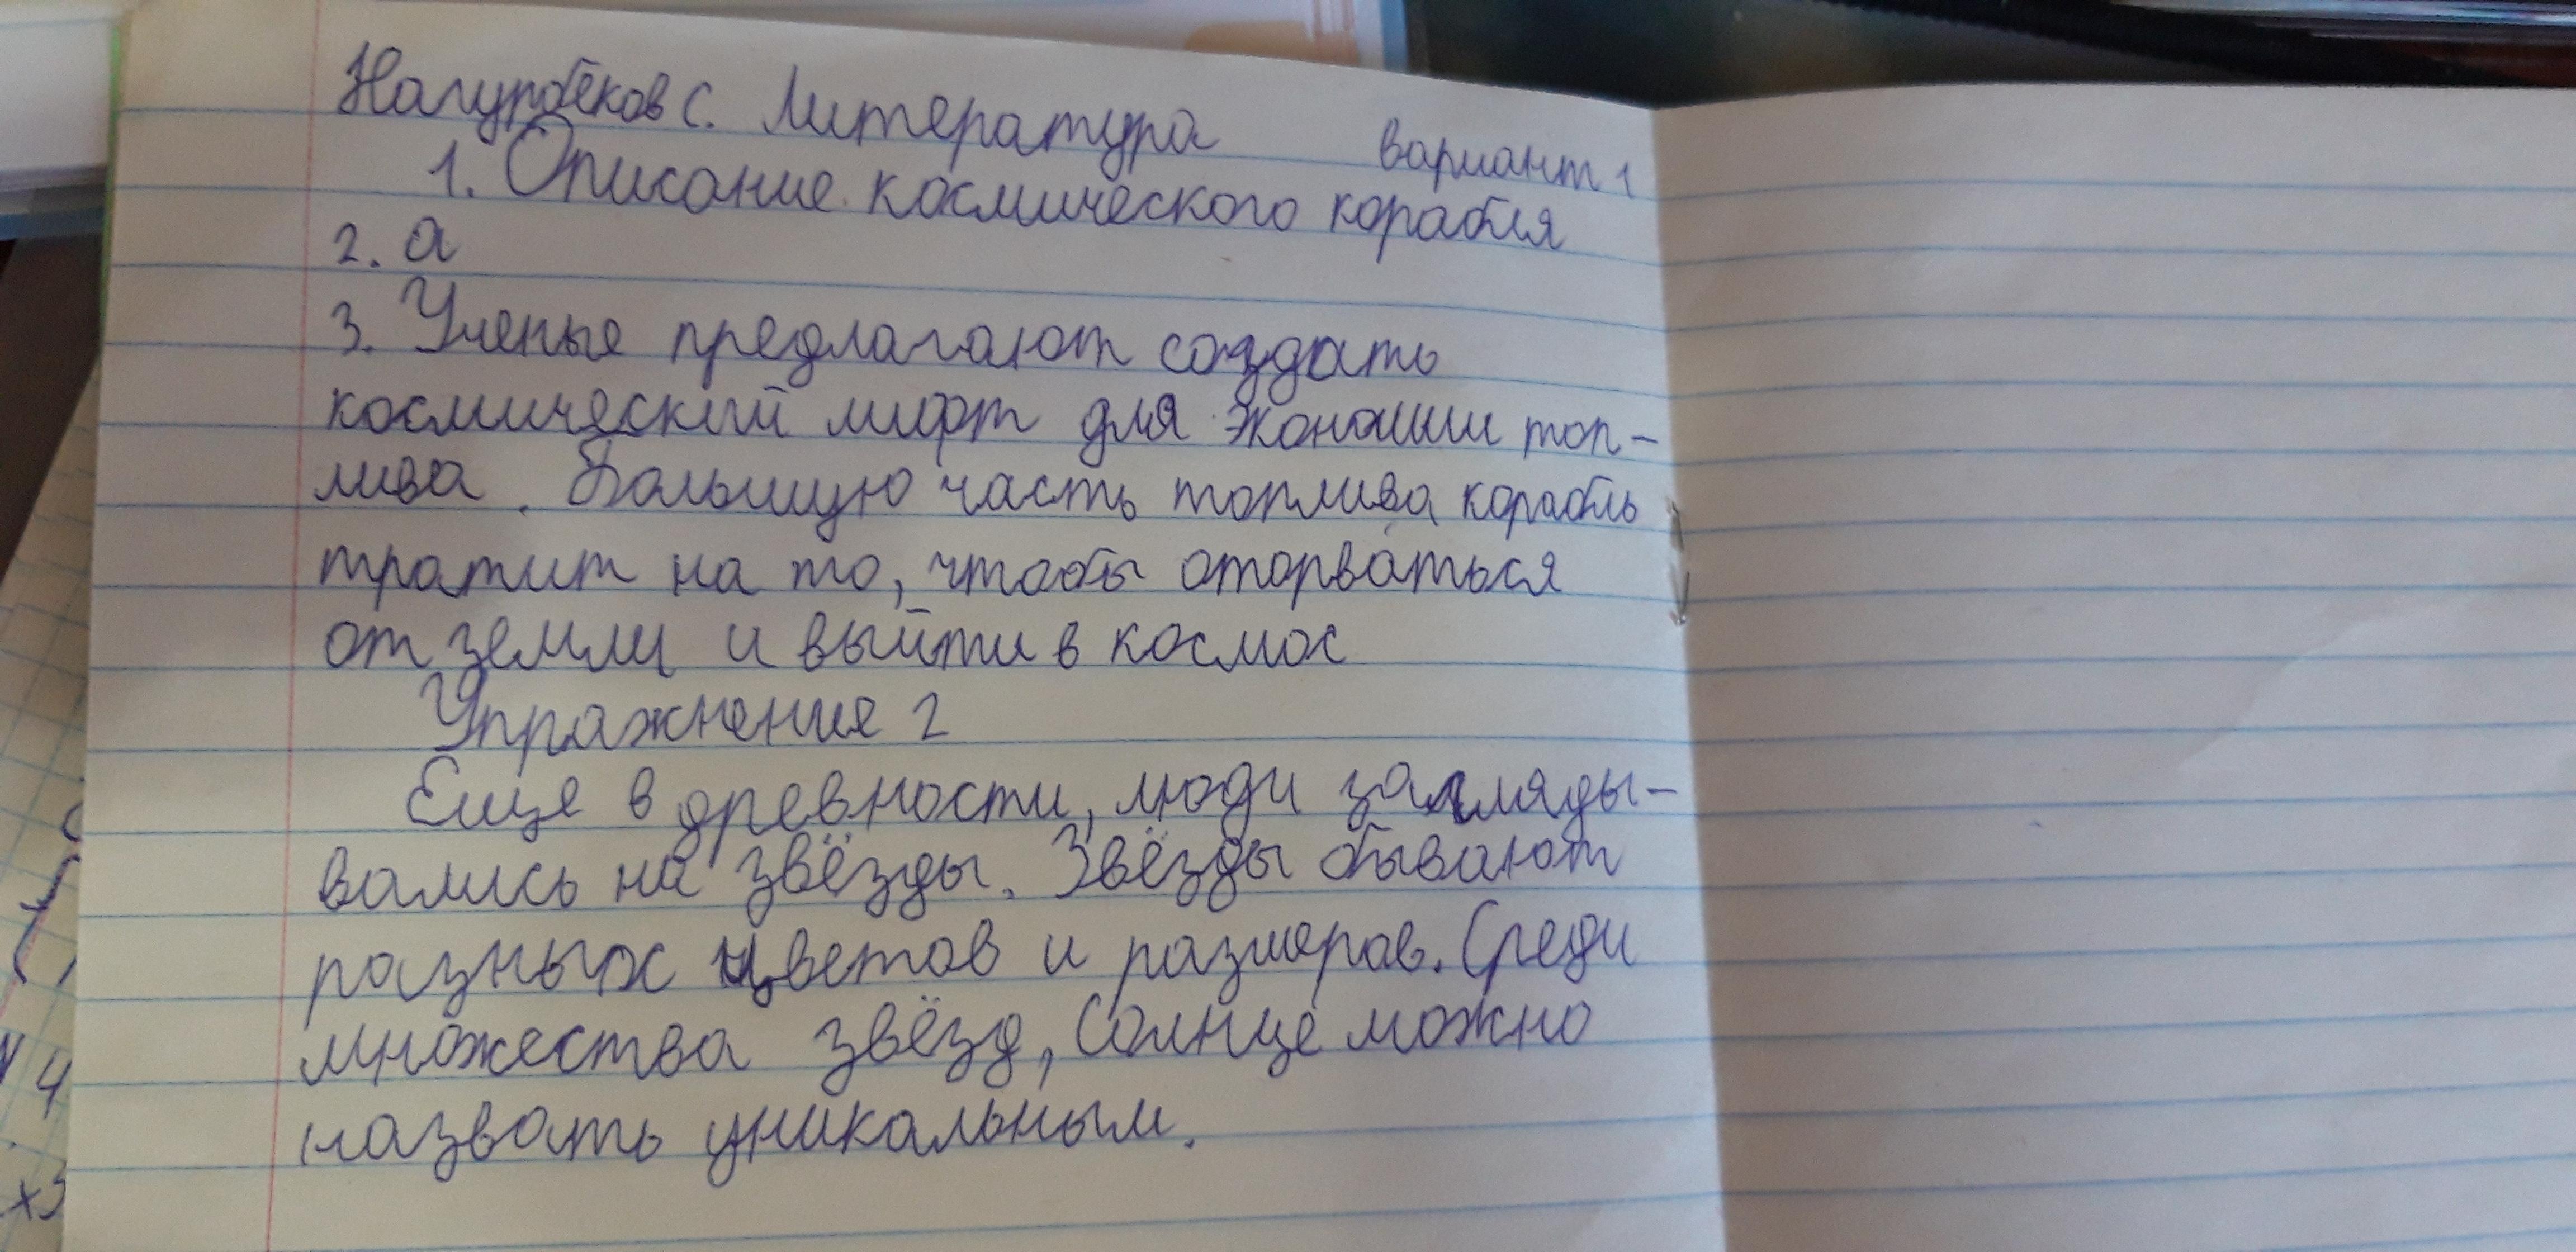 Нагурбеков С. Литература вариант 1
1. Описание космического корабля
2. а
3. Ученые предлагают создать
космический лифт для экономии топ-
лива. Большую часть топлива корабль
тратит на то, чтобы оторваться
от земли и выйти в космос
Упражнение 2
Еще в древности, люди загляды-
вались на звёзды. Звёзды бывают
разных цветов и размеров. Среди
множества звёзд, Солнце можно
назвать уникальным.
4